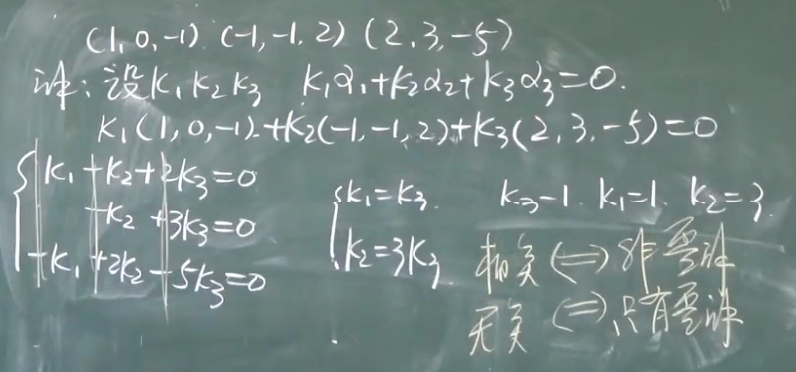 (1,0,-1) (-1,-1,2) (2,3,-5)
证:设K₁K₂K₃ K₁α₁+K₂α₂+K₃α₃=0.
K₁(1,0,-1)+K₂(-1,-1,2)+K₃(2,3,-5)=0
K₁+K₂+2K₃=0
-K₂+3K₃=0
-K₁+2K₂-5K₃=0
K₁=K₃
K₂=3K₃
K₃-1. K₁=1. K₂=3.
相关⇔非零解
无关⇔只有零解